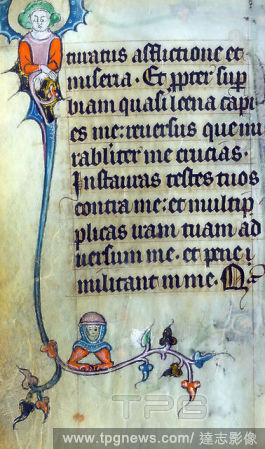 turatus afflictione et
miseria. Et ppter sup
biam quasi leena capi
es me: reuersus que mi
rabliter me crucias.
Instauras testes tuos
contra me: et multip
plicas iram tuam ad
uersum me. et pene i
militant in me.
TPG
www.tpgnews.com/ 達志影像